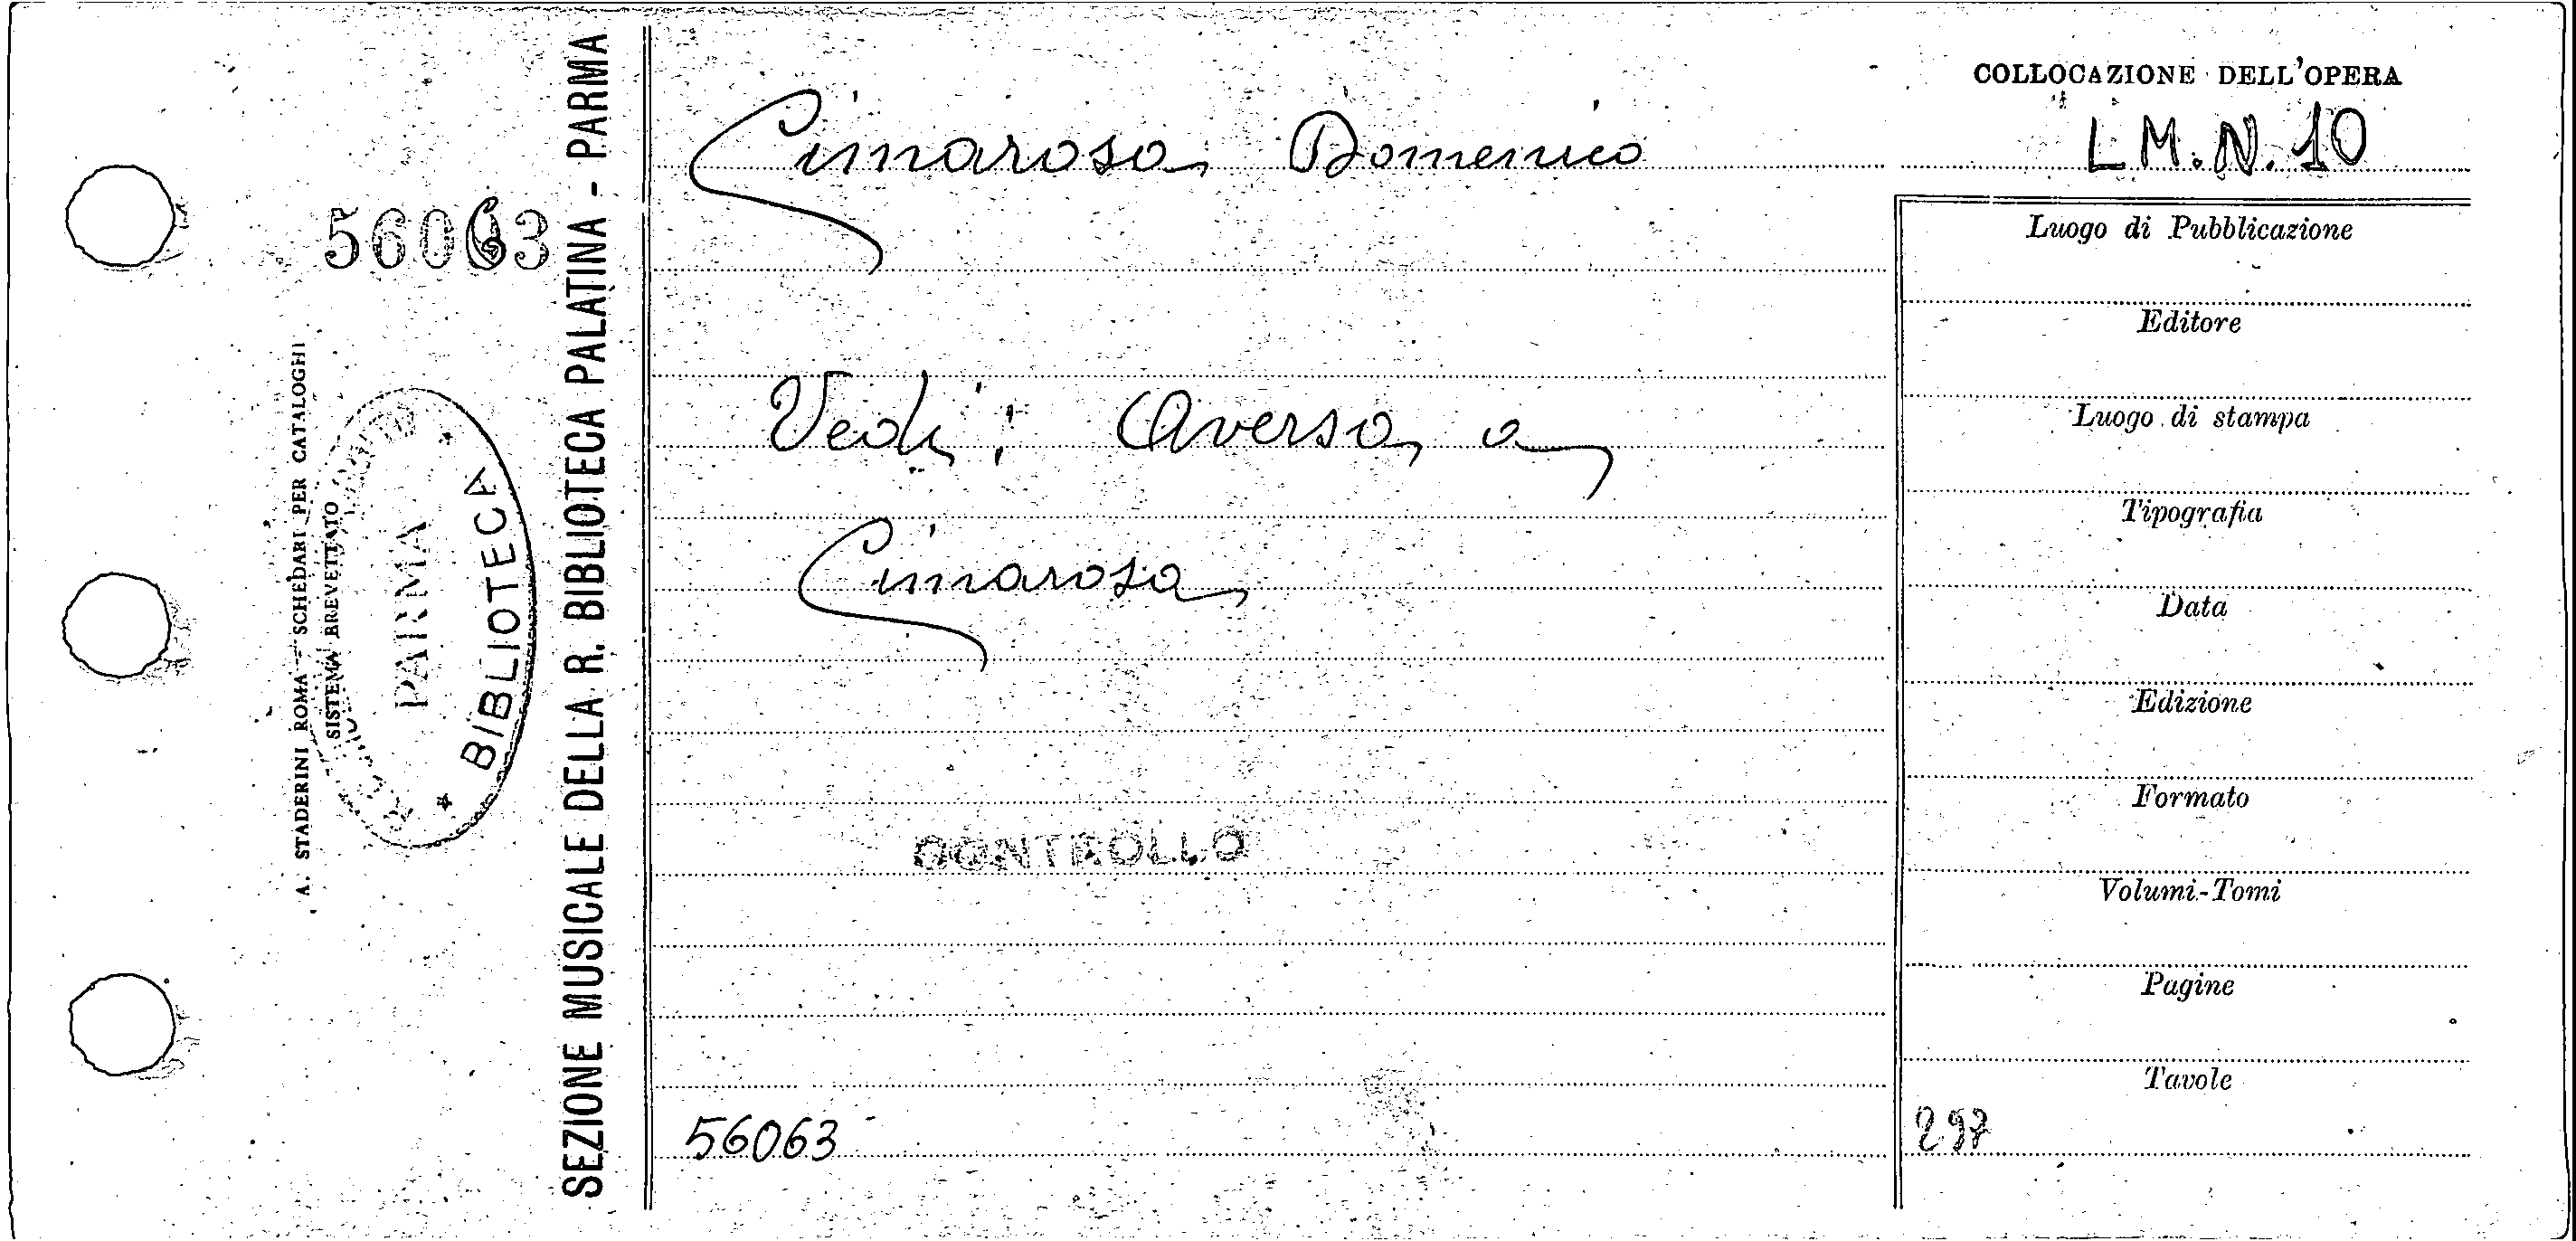 COLLOCAZIONE DELL'OPERA
Cimarosa Domenico
L M. N. 10
56063
Vedi: Aversa, a
Cimarosa
CONTROLLO
56063
Luogo di Pubblicazione
Editore
Luogo di stampa
Tipografia
Data
Edizione
Formato
Volumi-Tomi
Pagine
Tavole
297
SEZIONE MUSICALE DELLA R. BIBLIOTECA PALATINA - PARMA
A. STADERINI ROMA - SCHEDARI PER CATALOGHI
SISTEMA BREVETTATO
BIBLIOTECA
PARMA